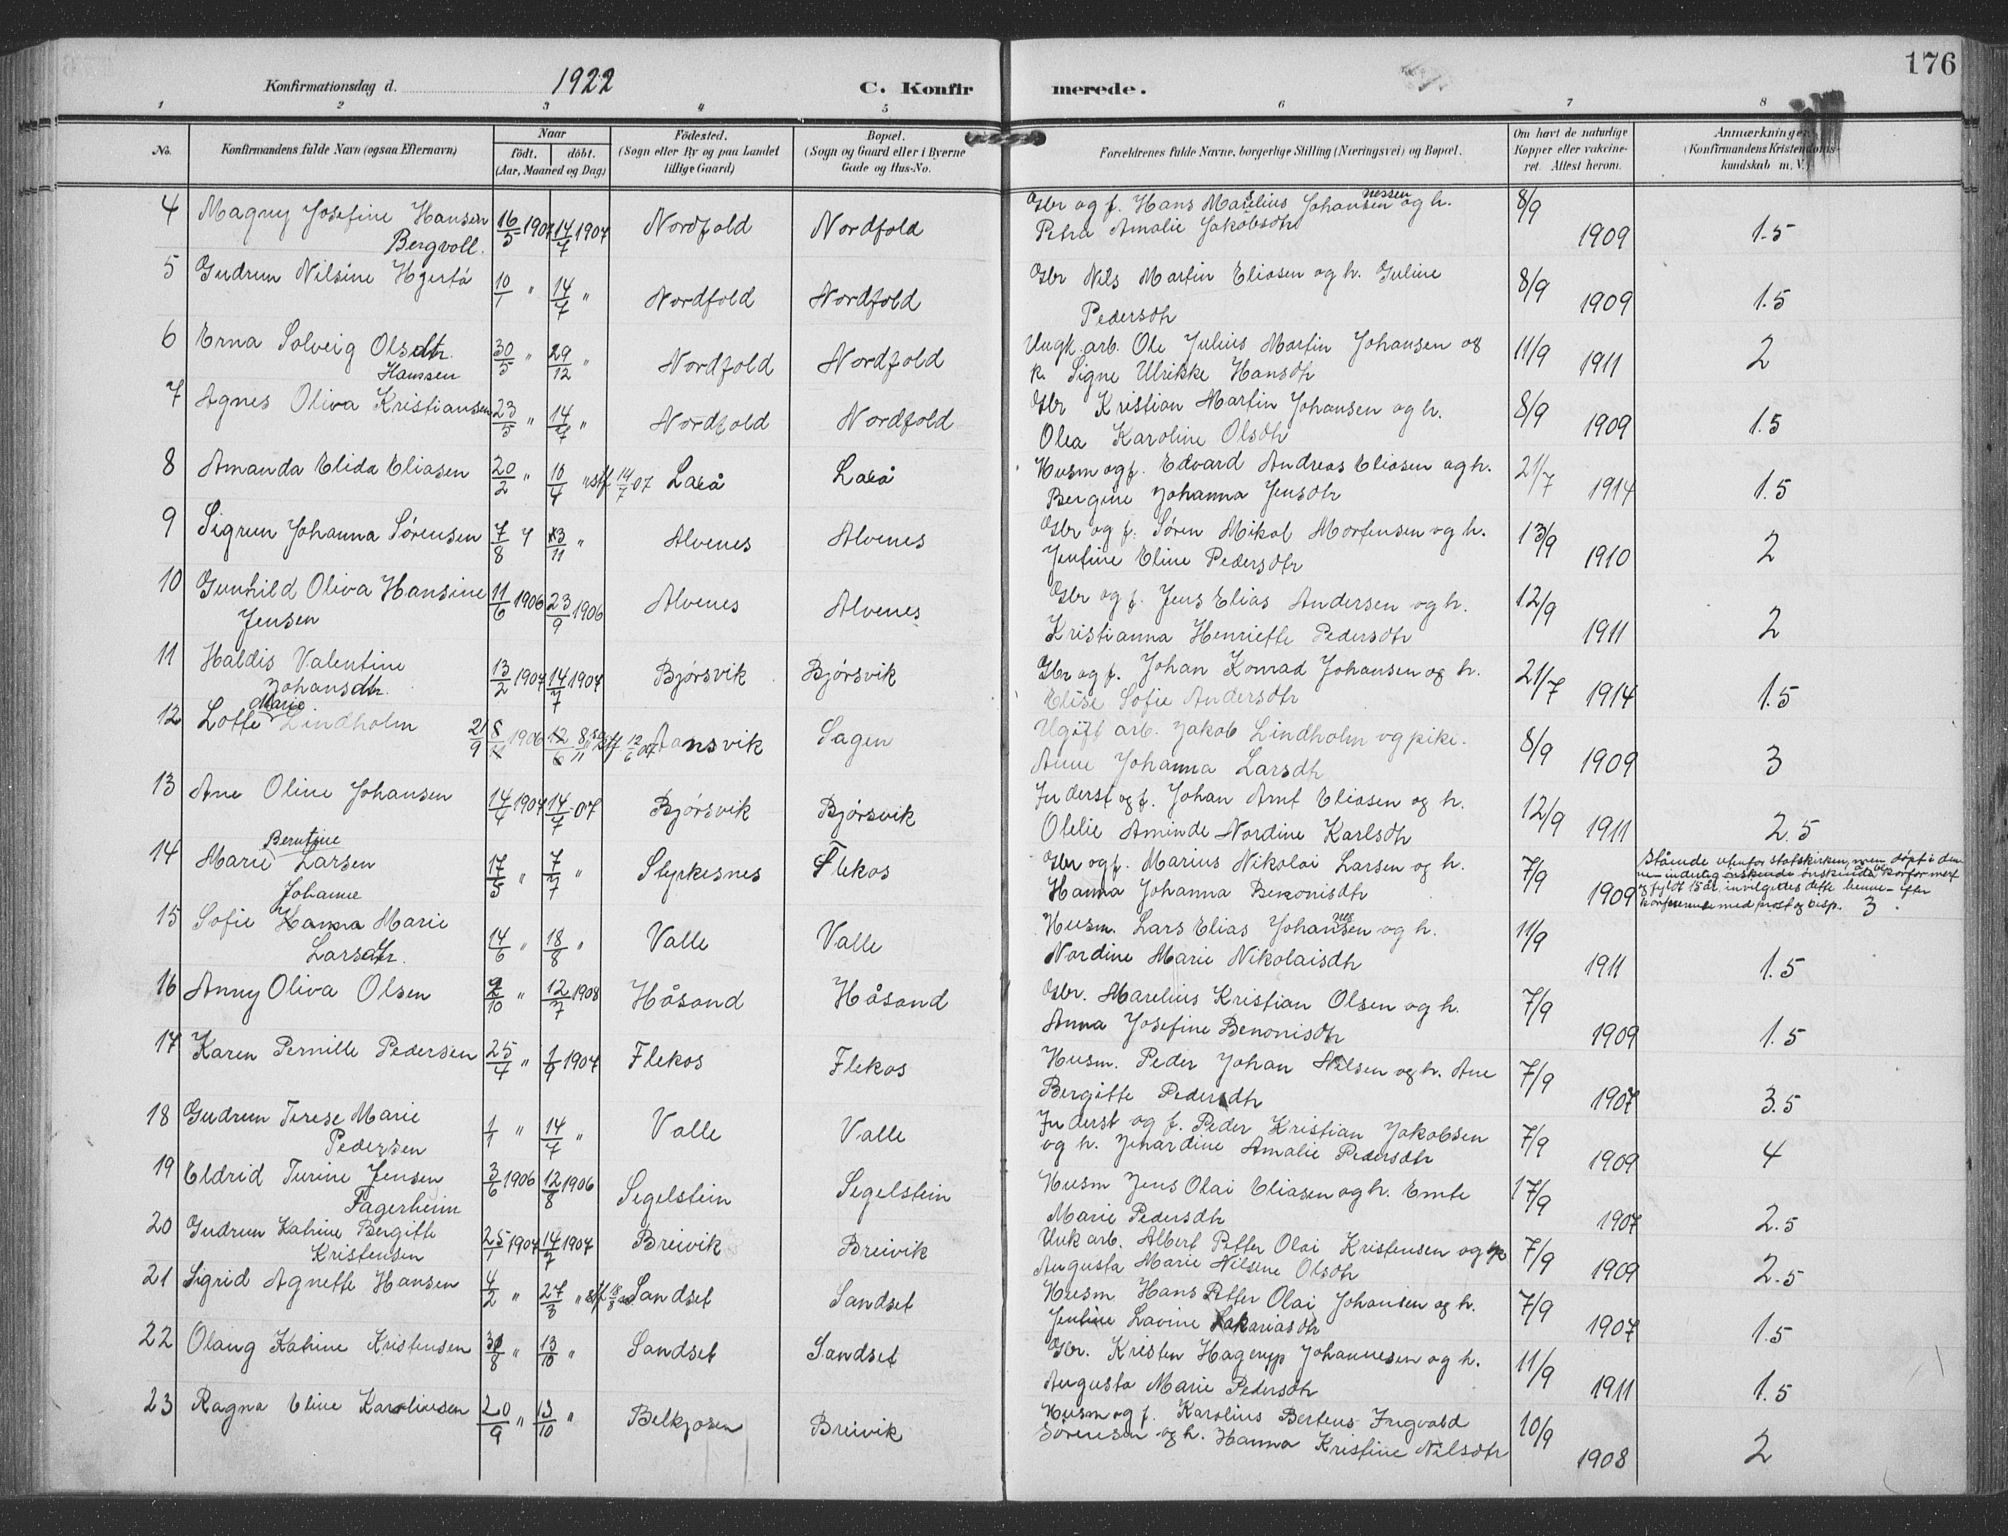 176
Konfirmationsdag d. 1922 C. Konfirmerede.
1 2 3 4 5 6 7 8
No. Konfirmandens fulde Navn (ogsaa Efternavn) Naar født. døbt. (Aar, Maaned og Dag) Fødested. (Sogn eller By og paa Landet tillige Gaard) Bopæl. (Sogn og Gaard eller i Byerne Gade og Hus-No. Forældrenes fulde Navne, borgerlige Stilling (Næringsvei) og Bopæl. Om havt de naturlige Kopper eller vakcineret. Attest herom. Anmærkninger (Konfirmandens Kristendomskundskab m. V.)
4 Magny Josefine Hansen 16/5 1907 14/7 1907 Nordfold Nordfold Gbr og f. Hans Marelius Johansen nessen og h. 8/9
Bergvoll. Petra Amalie Jakobsdtr 1909 1.5
5 Gudrun Nilsine Hjertø 10/1 " 14/7 " Nordfold Nordfold Gbr Nils Martin Eliasen og h. Guline 8/9
Pedersdtr 1909 1.5
6 Erna Solveig Olsdtr. 30/5 " 29/12 " Nordfold Nordfold Ungk. arb. Ole Julius Martin Johansen og 11/9
Hanssen p. Signe Ulrikke Hansdtr 1911 2
7 Agnes Oliva Kristiansen 23/5 " 14/7 " Nordfold Nordfold Gbr Kristian Martin Johansen og h. 8/9
Olea Karoline Olsdtr 1909 1.5
8 Amanda Elida Eliasen 20/2 " 10/4 " stf 14/7 07 Lakså Lakså Husm og f. Edvard Andreas Eliasen og h. 21/7
Bergine Johanna Jensdtr 1914 1.5
9 Sigrun Johanna Sørensen 7/8 " 13/11 " Alvenes Alvenes Gbr og f. Søren Mikal Mortensen og h. 13/9
Jentine Eline Pedersdtr 1910 2
10 Gunhild Oliva Hansine 11/6 1906 23/9 1906 Alvenes Alvenes Gbr og f. Jens Elias Andersen og h. 12/9
Jensen Kristianna Henriette Pedersdtr 1911 2
11 Haldis Valentine 13/2 1907 14/7 1907 Bjørsvik Bjørsvik Gbr og f. Johan Konrad Johansen og h. 21/7
Johansdtr. Elise Sofie Andersdtr 1914 1.5
12 Lotte Marie Lindholm 21/9 8/11 1906 12/6 8/11 stf 12/6 07 Aansvik Sagen Ugift arb. Jakob Lindholm og pike. 8/9
Anne Johanna Larsdtr 1909 3
13 Ane Oline Johansen 14/4 1907 14/7 07 Bjørsvik Bjørsvik Inderst og f. Johan Arnt Eliasen og h. 12/9
Ofelie Aminde Nordine Karlsdtr 1911 2.5
14 Marie Berntine Larsen 17/5 " 7/7 " Styrkesnes Flekos Gbr og f. Marius Nikolai Larsen og h. 7/9 Stående utenfor statskirken, men døpt i denne
Hanna Johanna Benonisdtr 1909 og fyldt 15 år, invilgedes dette henne efter konference med prost og bisp. 3
15 Sofie Johanne Hanna Marie 14/6 " 18/8 " Valle Valle Husm. Lars Elias Johannesen og h. 11/9
Larsdtr. Nordine Marie Nikolaisdtr 1911 1.5
16 Anny Oliva Olsen 9/10 " 12/7 1908 Håsand Håsand Gbr. Marelius Kristian Olsen og h. 7/9
Anna Josefine Benonisdtr 1909 1.5
17 Karen Pernille Pedersen 25/4 " 1/9 1907 Flekos Flekos Husm. Peder Johan Nilsen og h. Ane 7/9
Bergitte Pedersdtr 1907 3.5
18 Gudrun Terese Marie 1/1 " 14/7 " Valle Valle Inderst og f. Peder Kristian Jakobsen 7/9
Pedersen og h. Jenardine Amalie Pedersdtr 1909 4
19 Eldrid Turine Jensen 3/6 1906 12/8 1906 Segelstein Segelstein Husm Jens Olai Eliasen og h. Emte 17/9
Fagerheim Marie Pedersdtr 1907 2.5
20 Gudrun Katrine Bergitte 25/1 1907 14/7 1907 Breivik Breivik Unk arb. Albert Petter Olai Kristensen og p 7/9
Kristensen Augusta Marie Nilsine Olsdtr 1909 2.5
21 Sigrid Agnette Hansen 4/2 " 27/3 " stf Sandset Sandset Husm Hans Petter Olai Johansen og h. 7/9
Jentine Lavine Sakariasdtr 1907 1.5
22 Olaug Katrine Kristensen 31/8 " 13/10 " Sandset Sandset Gbr. Kristen Hagerup Johannesen og h. 11/9
Augusta Marie Pedersdtr 1911 1.5
23 Ragna Eline Karoliusen 20/9 " 13/10 " Belkjosen Breivik Husm og f. Karolius Berteus Ingvald 10/9
Sørensen og h. Hanna Kristine Nilsdtr 1908 2